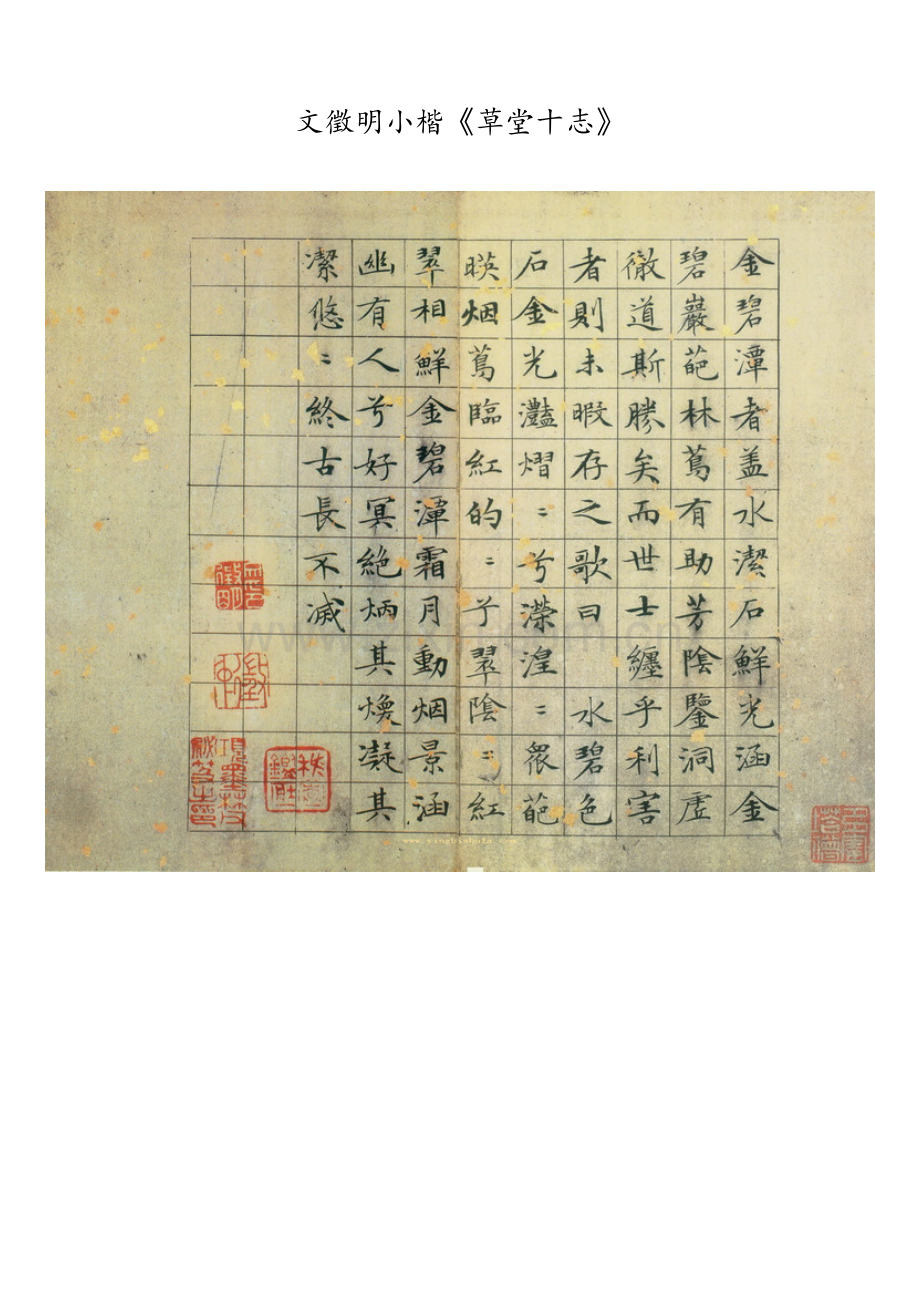 文徵明小楷《草堂十志》
金碧潭者盖水潔石鮮光涵金
碧巖葩林蔦有助芳陰鑒洞虛
徹道斯勝矣而世士纏乎利害
者則未暇存之歌曰 水碧色
石金光灩熠〻兮濴湟〻眾葩
暎烟蔦臨紅的〻兮翠陰〻紅
翠相鮮金碧潭霜月動烟景涵
幽有人兮好冥絕炳其煥凝其
潔悠〻終古長不滅
www.yingbishufa.com